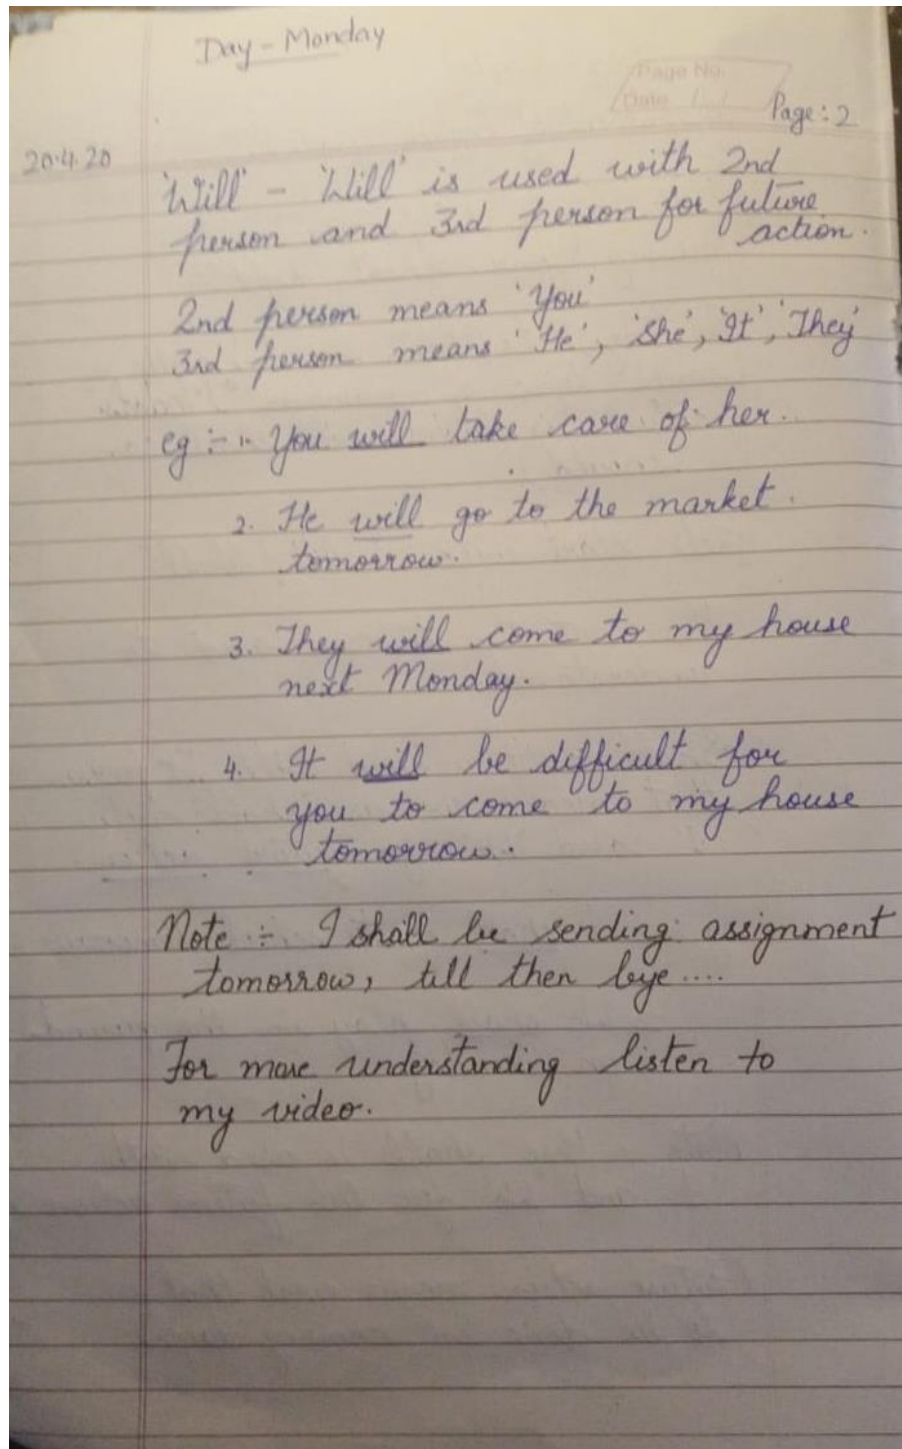 Day - Monday
Page No.
Date / /
Page : 2
20.4.20
'Will' - 'Will' is used with 2nd
person and 3rd person for future
action.
2nd person means 'You'
3rd person means 'He', 'She', 'It', 'They'
eg :- 1. You will take care of her.
2. He will go to the market
tomorrow.
3. They will come to my house
next Monday.
4. It will be difficult for
you to come to my house
tomorrow.
Note :- I shall be sending assignment
tomorrow, till then bye ....
For more understanding listen to
my video.